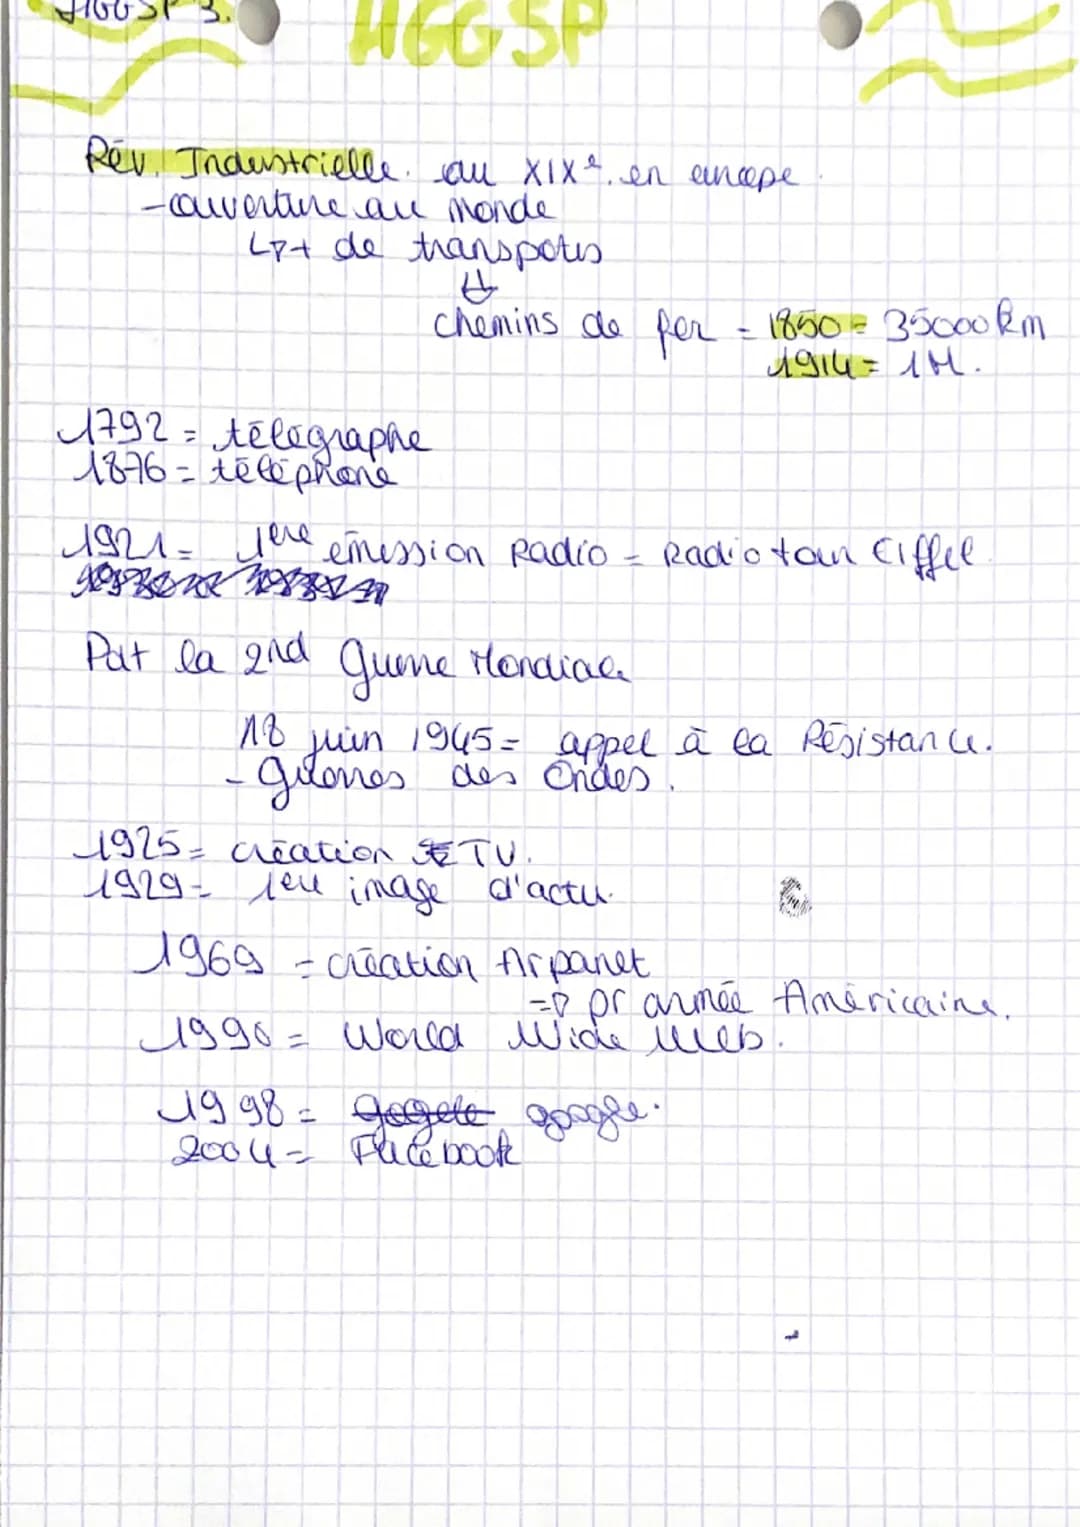 HGGSP 3.
HGGSP
Rév. Industrielle. au XIXe. en europe.
- ouverture au monde
↳ + de transpots
⇓
chemins de fer = 1850 = 35000 km
1914 = 1M.
1792 = télégraphe
1876 = téléphone
1921 = 1ere émission Radio = Radio tour Eiffel
Pdt la 2nd Guerre Mondiale
18 juin 1945 = appel à la Résistance.
- guerres des Ondes.
1925 = création TV.
1929 = 1ere image d'actu.
1969 = création Arpanet
=> pr armée Américaine.
1990 = World Wide Web.
1998 = google.
2004 = Facebook